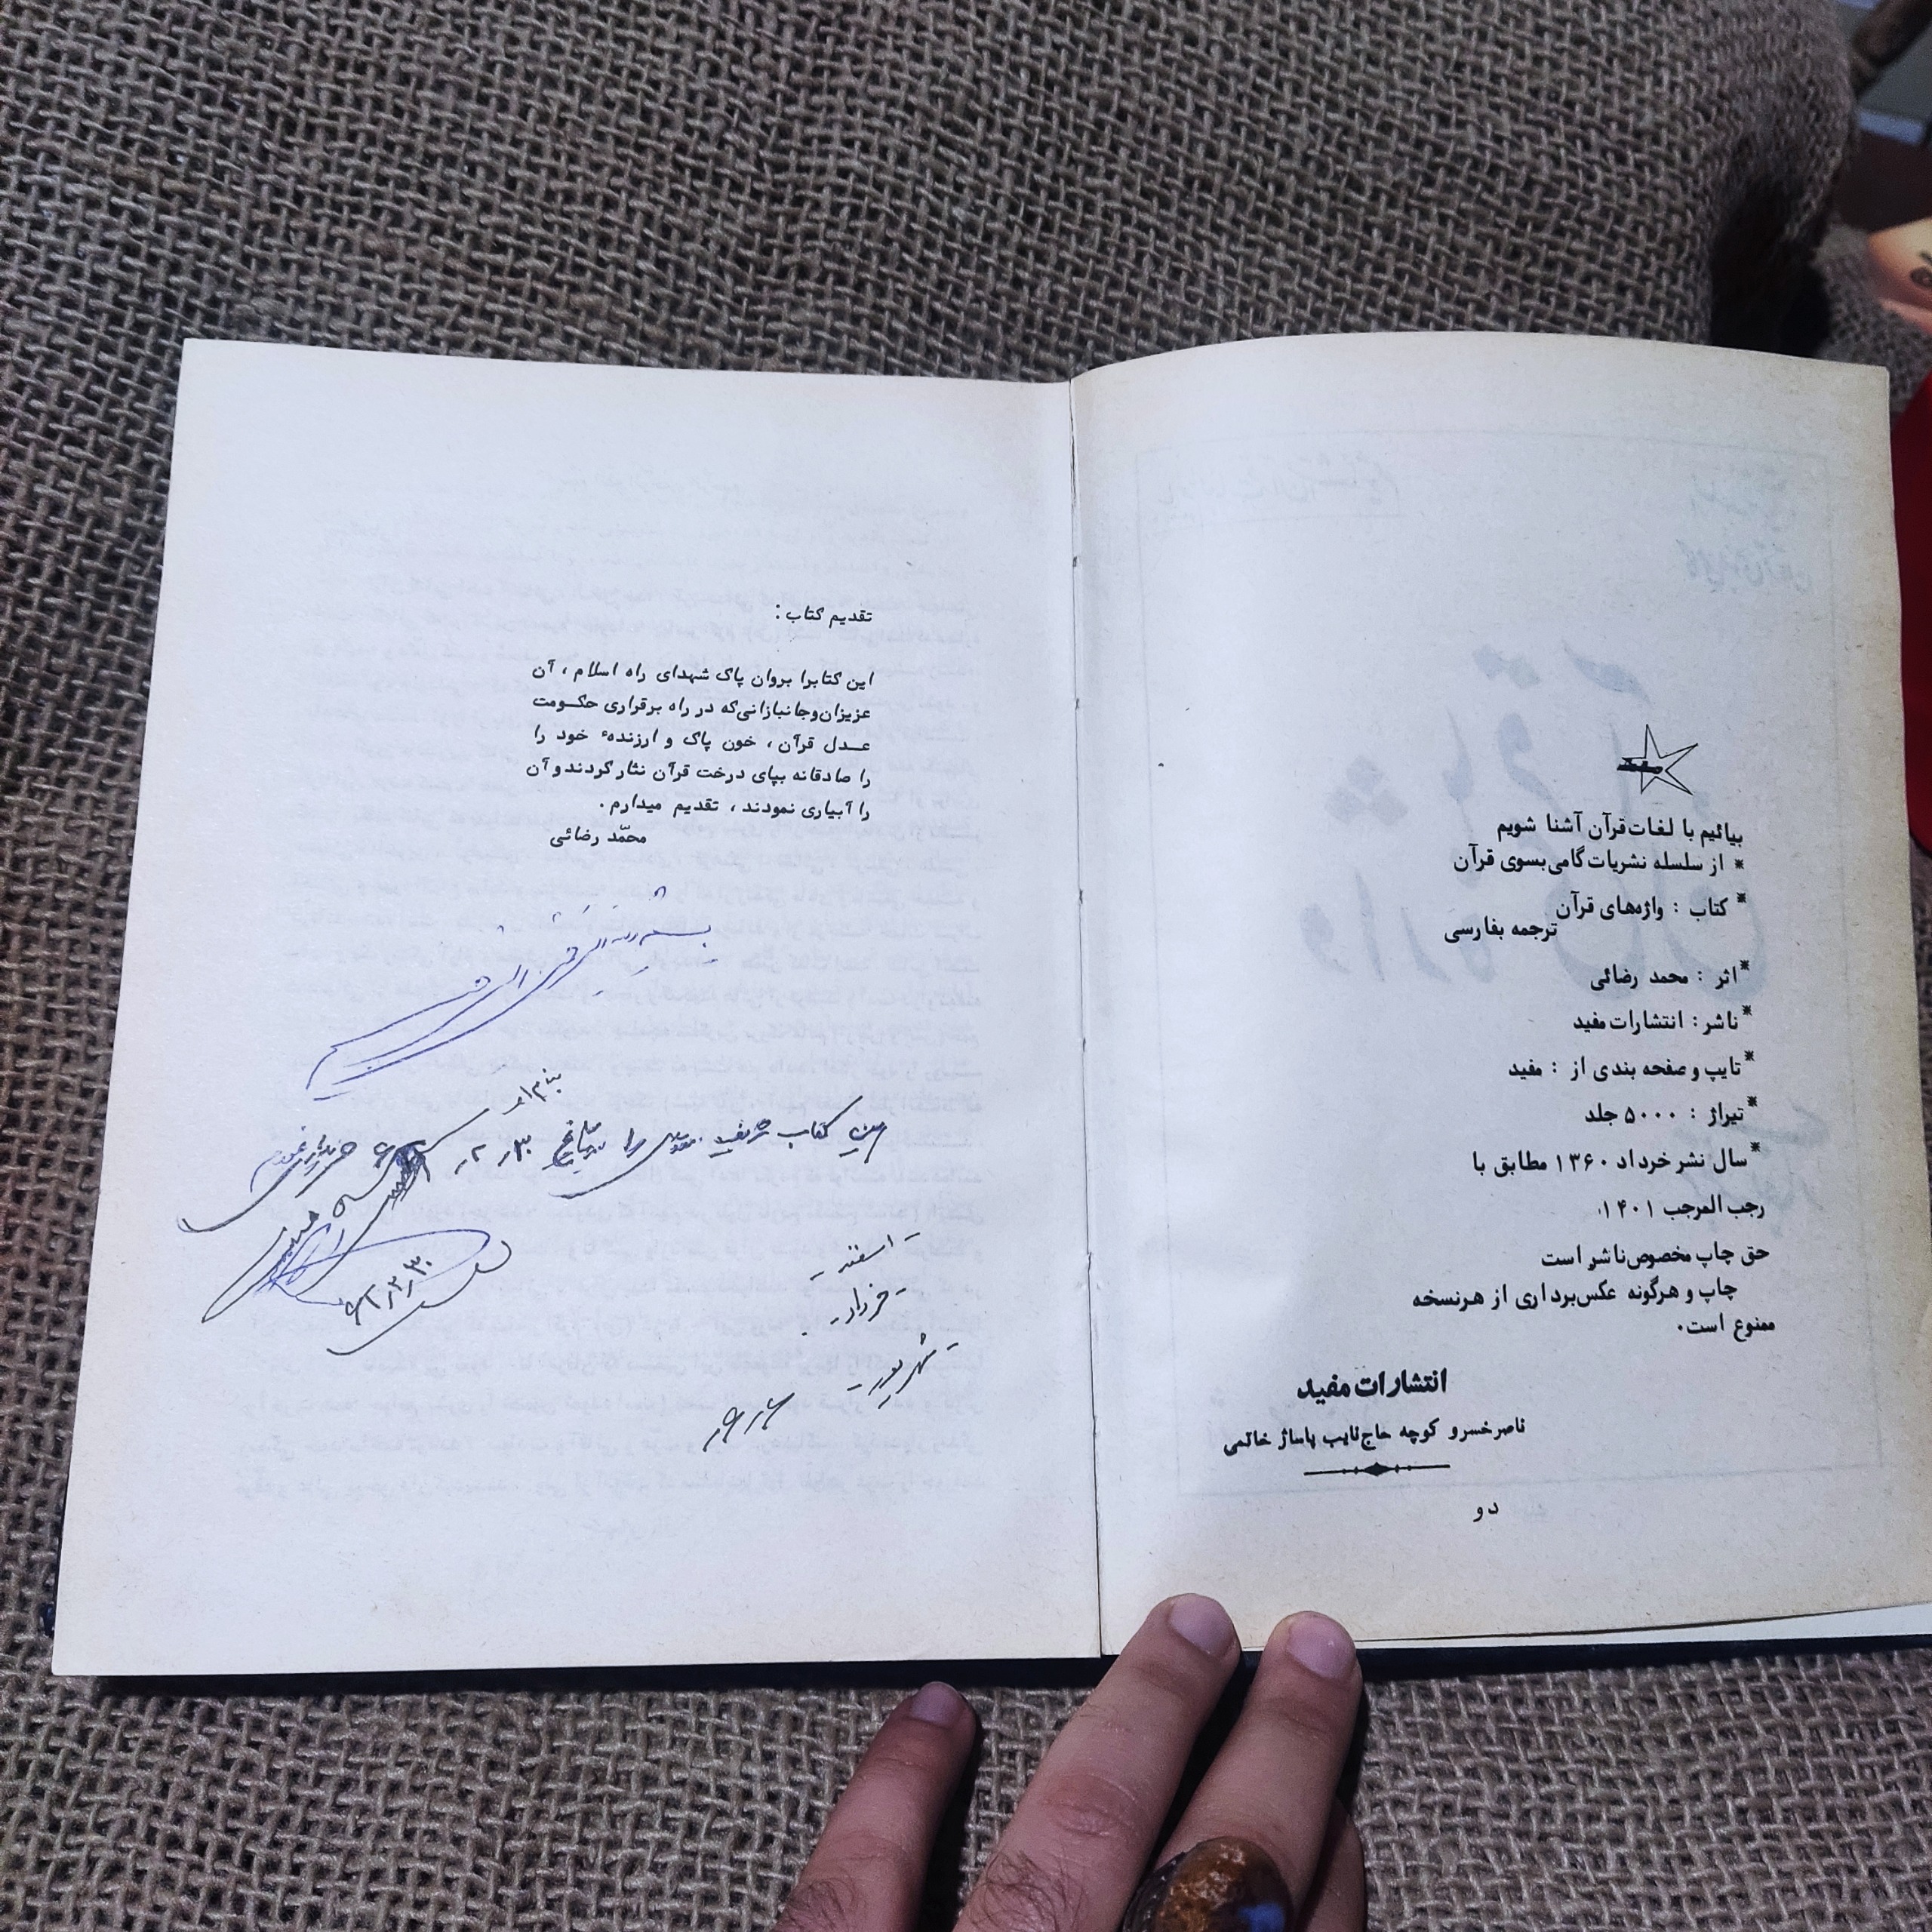 بیائیم با لغات قرآن آشنا شویم
* از سلسله نشریات گامی بسوی قرآن
* کتاب : واژه‌های قرآن
ترجمه بفارسی
* اثر : محمد رضائی
* ناشر : انتشارات مفید
* تایپ و صفحه بندی از : مفید
* تیراژ : ۵۰۰۰ جلد
* سال نشر خرداد ۱۳۶۰ مطابق با
رجب المرجب ۱۴۰۱
حق چاپ مخصوص ناشر است
چاپ و هرگونه عکس‌برداری از هرنسخه
ممنوع است.
انتشارات مفید
ناصرخسرو کوچه حاج‌نایب پاساژ خاتمی
دو
تقدیم کتاب :
این کتابرا بروان پاک شهدای راه اسلام ، آن
عزیزان وجانبازانی‌که در راه برقراری حکومت
عدل قرآن ، خون پاک و ارزندهٔ خود را
را صادقانه بپای درخت قرآن نثار کردند و آن
را آبیاری نمودند ، تقدیم میدارم .
محمّد رضائی
بنام او
کتاب شریف را
- اسفند -
- خرداد -
- شهریور -